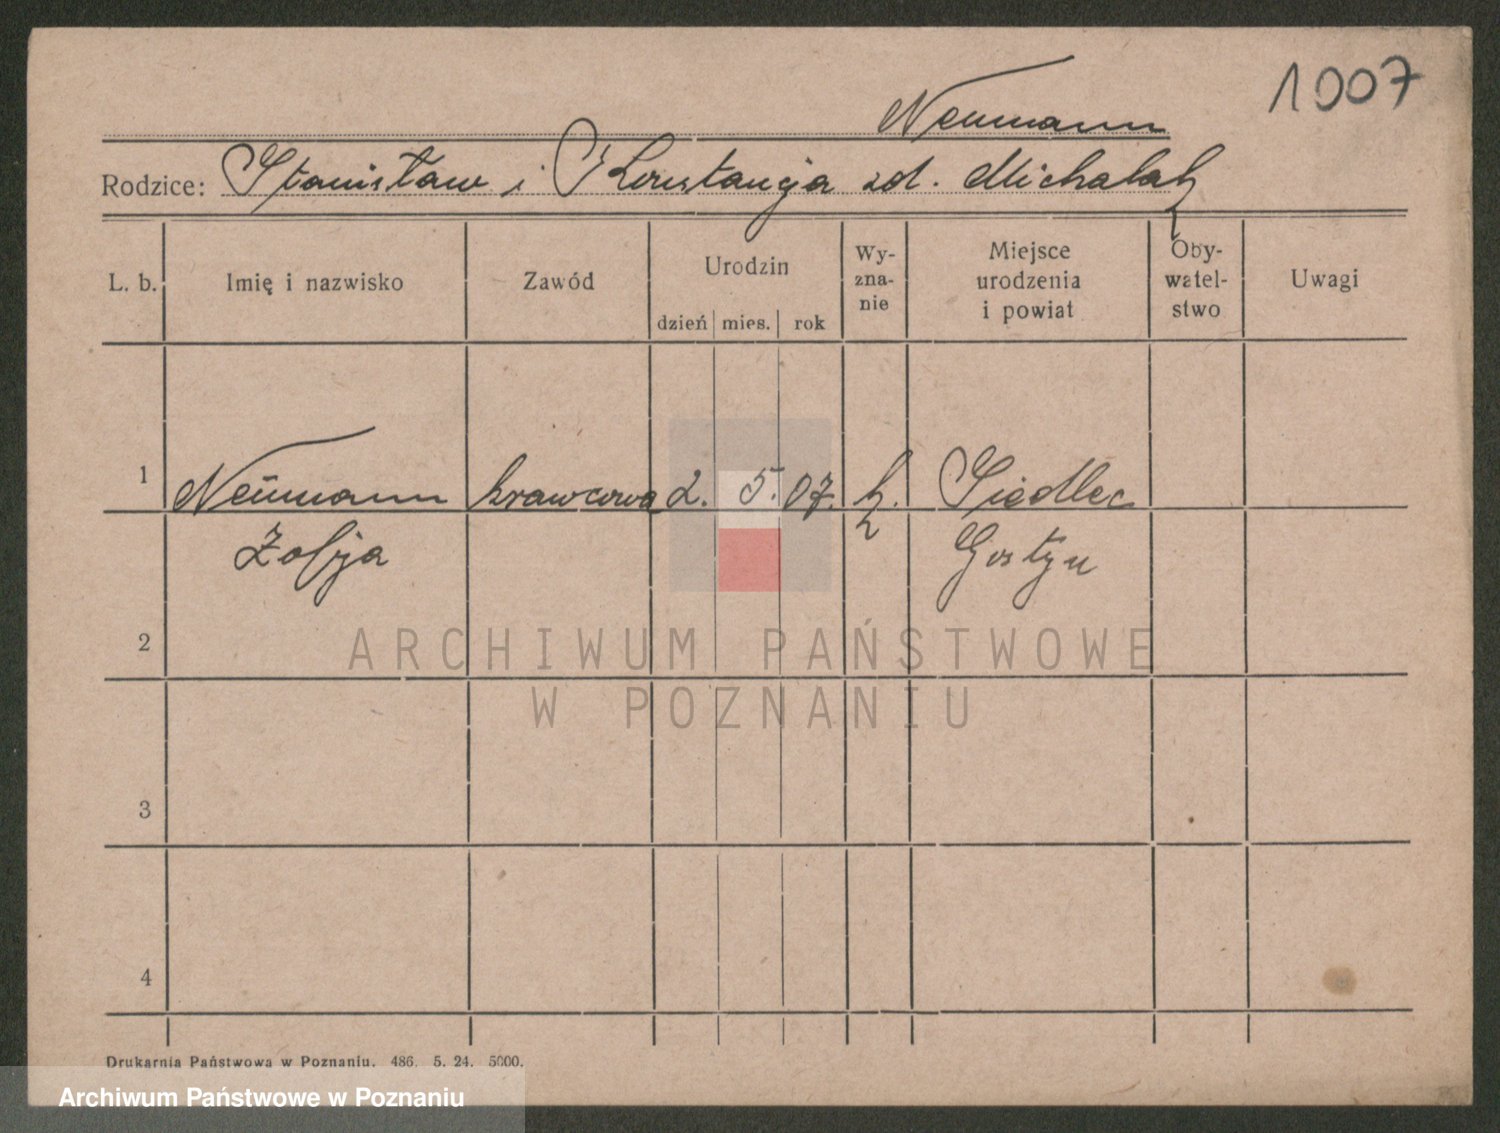 1007
Neumann
Rodzice: Stanisław i Konstancja zd. Michalak
L. b. Imię i nazwisko Zawód Urodzin Wyznanie Miejsce urodzenia i powiat Obywatelstwo Uwagi
dzień mies. rok
1 Neumann krawcowa 2. 5. 07. k. Siedlec
Zofja Gostyn
2
ARCHIWUM PAŃSTWOWE
W POZNANIU
3
4
Drukarnia Państwowa w Poznaniu. 486. 5. 24. 5000.
Archiwum Państwowe w Poznaniu